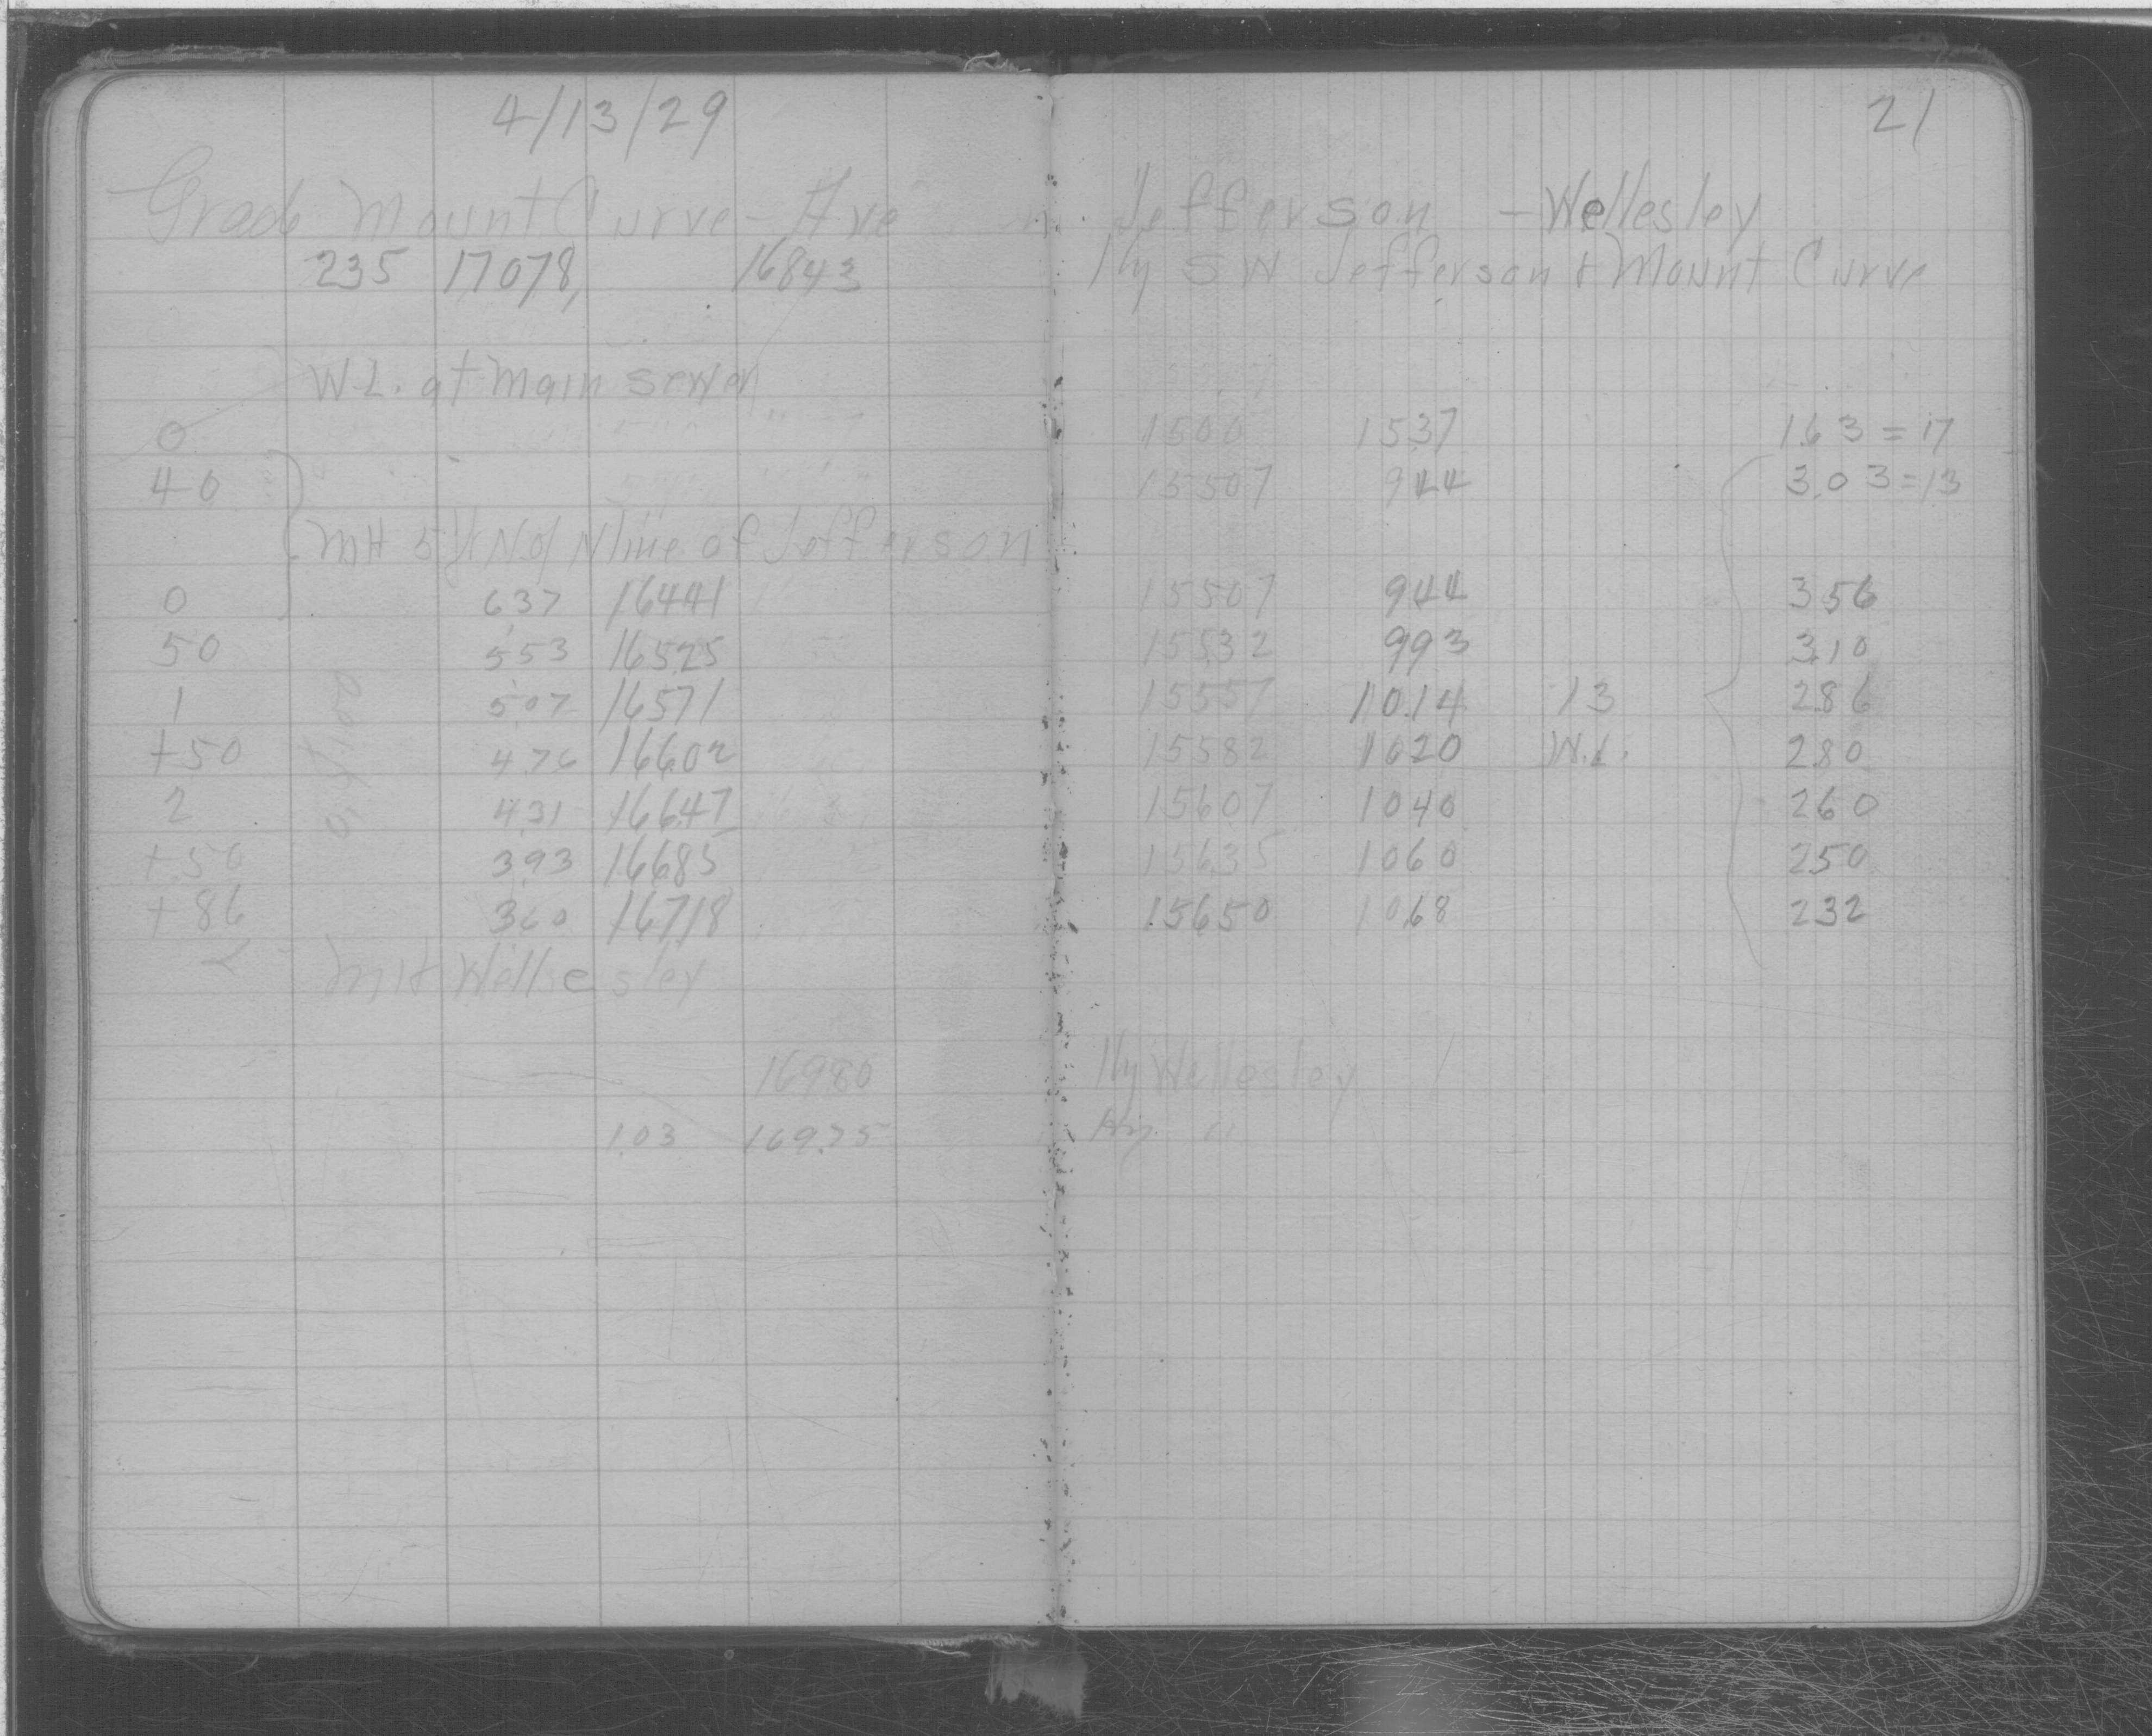 4/13/29
21
Grade Mount Curve - Ave
Jefferson - Wellesley
235 17078, 16843
Hy SW Jefferson & Mount Curve
W.L. at main sewer
0 1500 1537 163 = 17
40 15507 944 3.03 = 13
MH 5' N of N line of Jefferson
0 637 16441 15507 944 356
50 553 16525 15532 993 310
1 507 16571 15557 1014 13 286
+50 476 16602 15582 1020 W.L. 280
2 431 16647 15607 1040 260
+50 393 16685 15635 1060 250
+86 360 16718 15650 1068 232
MH Wellesley
16980 Hy Wellesley
103 16975 Hy "